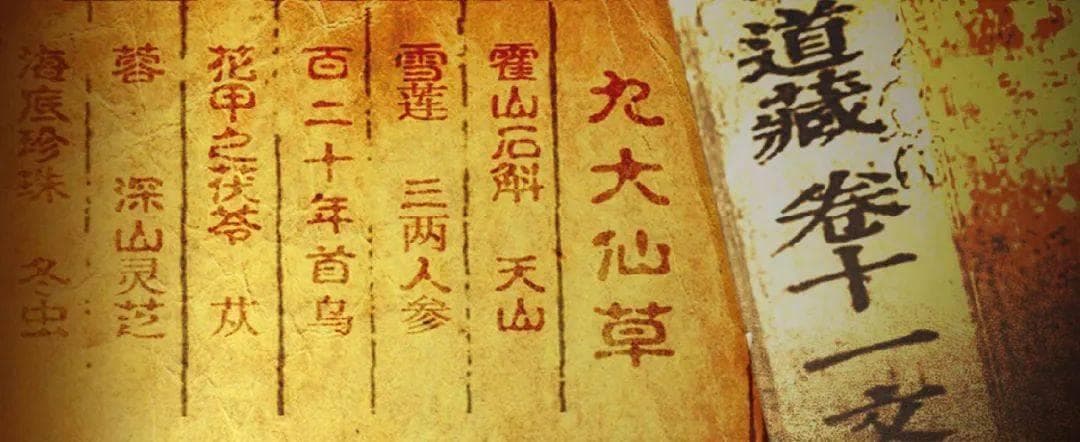 道藏 卷十一 文
九大仙草
霍山石斛 天山
雪莲 三两人参
百二十年首乌
花甲之茯苓 苁
蓉 深山灵芝
海底珍珠 冬虫